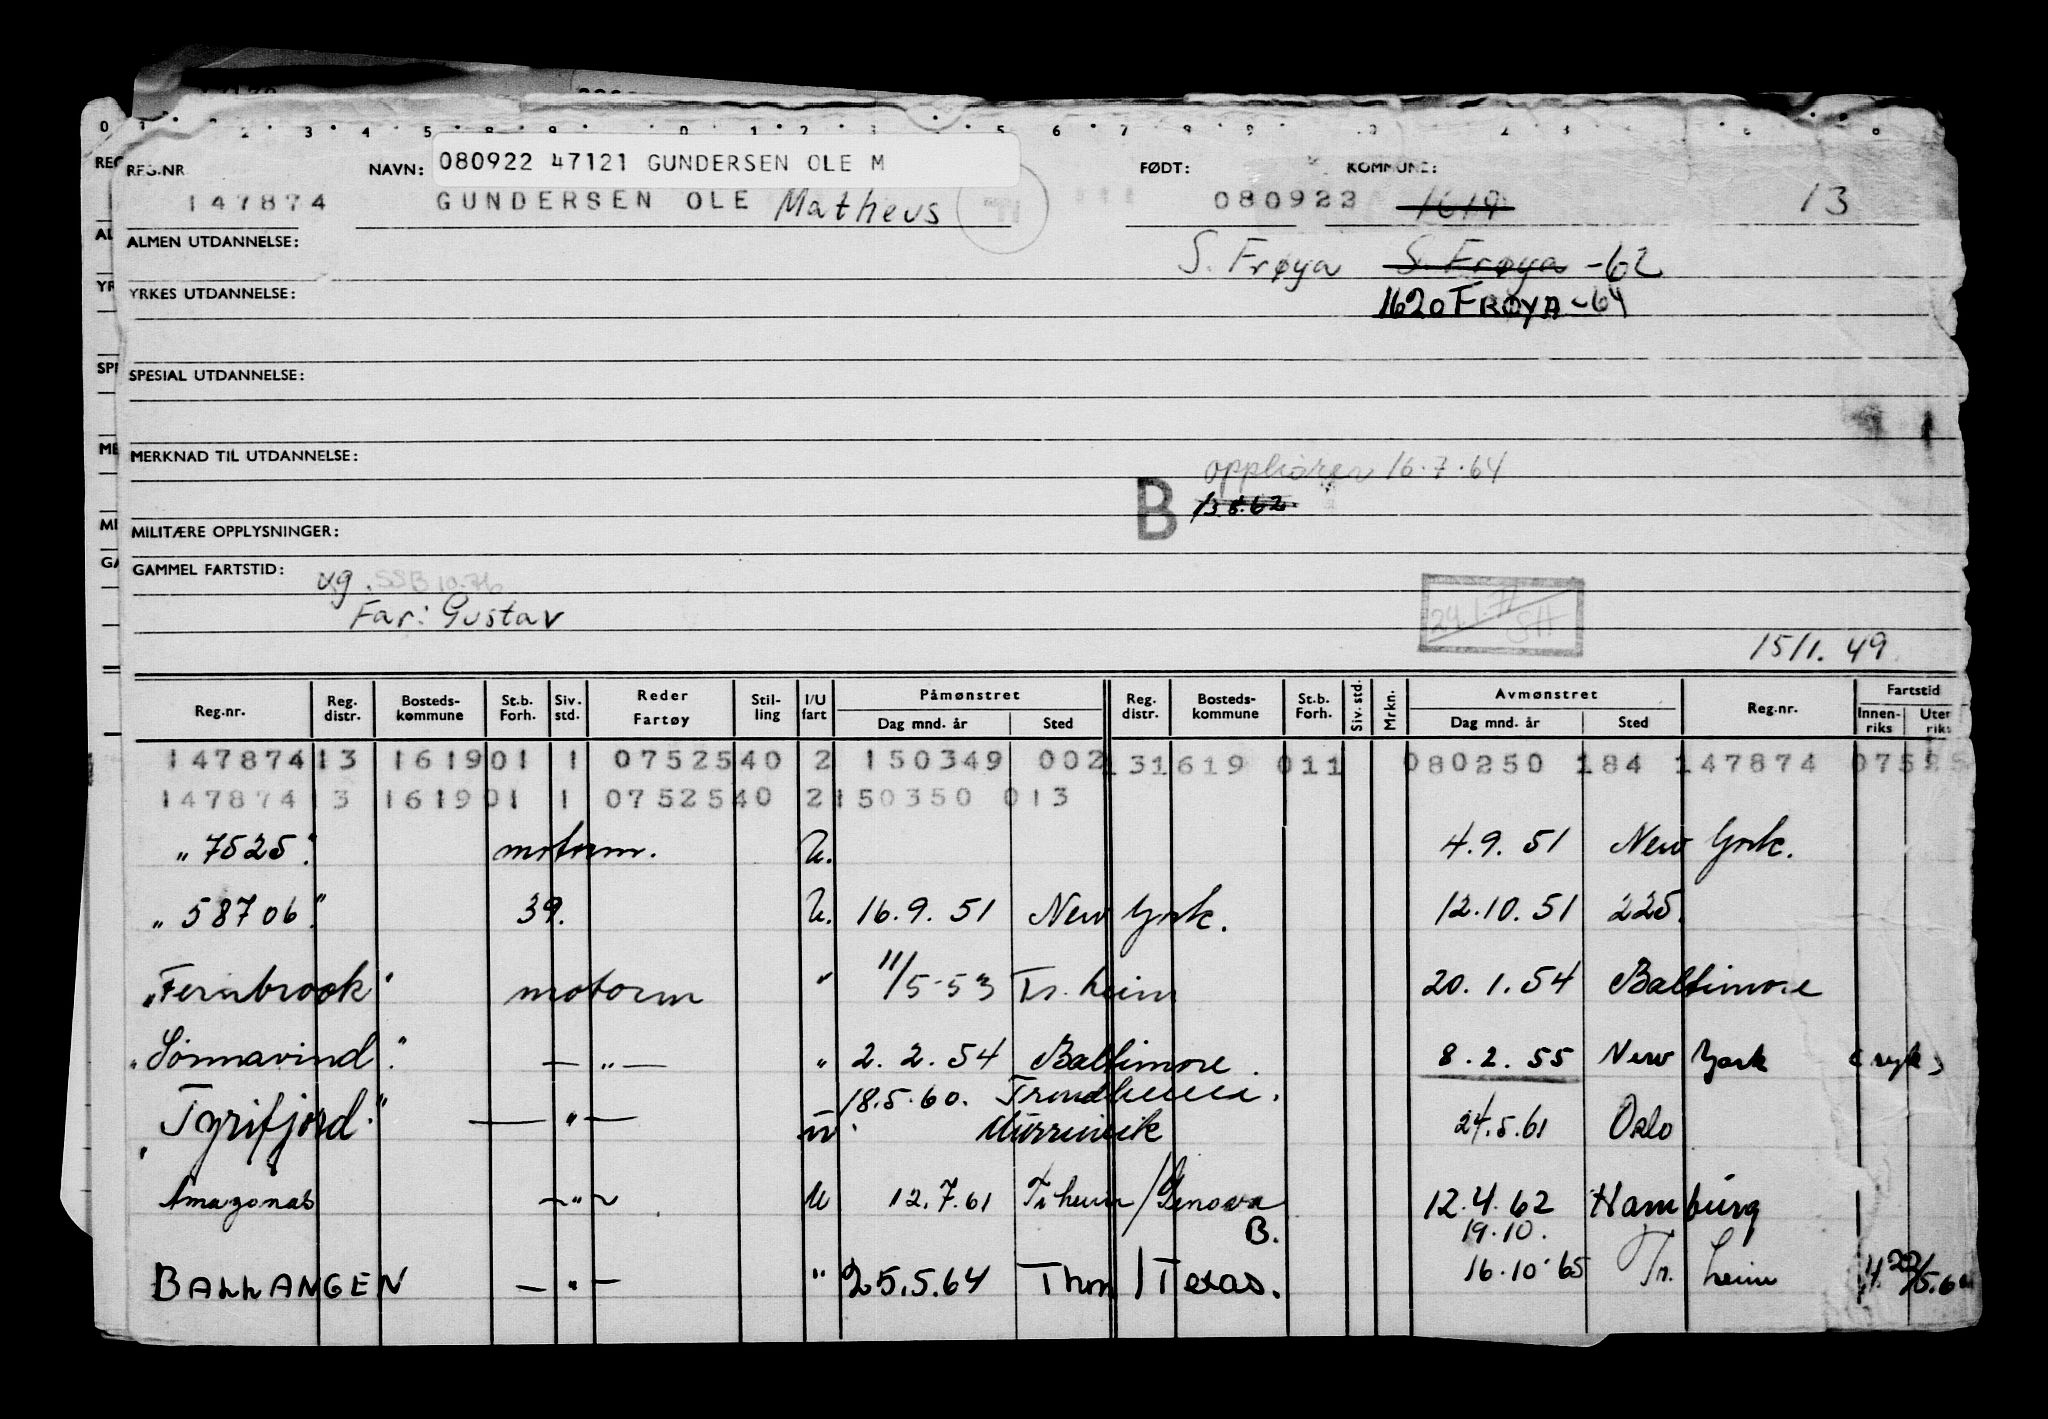 REG.NR NAVN: 080922 47121 GUNDERSEN OLE M FØDT: KOMMUNE:
147874 GUNDERSEN OLE Matheus 080922 1619 13
ALMEN UTDANNELSE: S. Frøya S. Frøya -62
YRKES UTDANNELSE: 1620 FRØYA -64
SPESIAL UTDANNELSE:
MERKNAD TIL UTDANNELSE: opphører 16.7.64
B 13.8.62
MILITÆRE OPPLYSNINGER:
GAMMEL FARTSTID: ug. SSB 10.76
Far: Gustav
15/1. 49
Reg.nr. Reg. distr. Bosteds- kommune St.b. Forh. Siv. std. Reder Fartøy Stil- ling I/U fart Påmønstret Dag mnd. år Sted Reg. distr. Bosteds- kommune St.b. Forh. Siv. std. Mrkn. Avmønstret Dag mnd. år Sted Reg.nr. Fartstid Innen- riks Uten riks
147874 13 1619 01 1 0752540 2 150349 002 131619 011 080250 184 147874 07525
147874 13 1619 01 1 0752540 2 150350 013
"7525". motorm. U. 4.9. 51 New York.
"58706". 39. U. 16.9. 51 New York. 12.10. 51 225.
"Fernbrook" motorm " 11/5-53 Tr.heim 20. 1. 54 Baltimore
"Sönnavind". — " — " 2. 2. 54 Baltimore. 8. 2. 55 New York
18.5.60. Trondheim.
"Tyrifjord." — " — 24.5.61 Oslo
Amazonas — " — U 12.7.61 Tr heim / Genova 12.4. 62 Hamburg
B. 19.10.
BALLANGEN — " — " 25.5.64 Thm / Texas. 16.10.65 Tr. heim